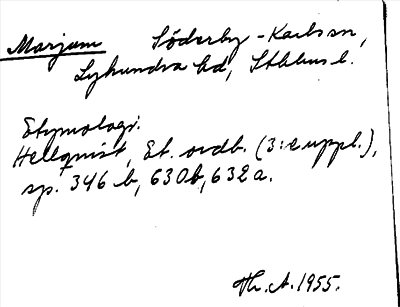 Marjum Söderby-Karlsson,
Lyhundra hd, Sthlms l.
Etymologi.
Hellquist, Et. ordb. (3:e uppl.),
sp. 346 b, 630b, 632a.
Th. A. 1955.